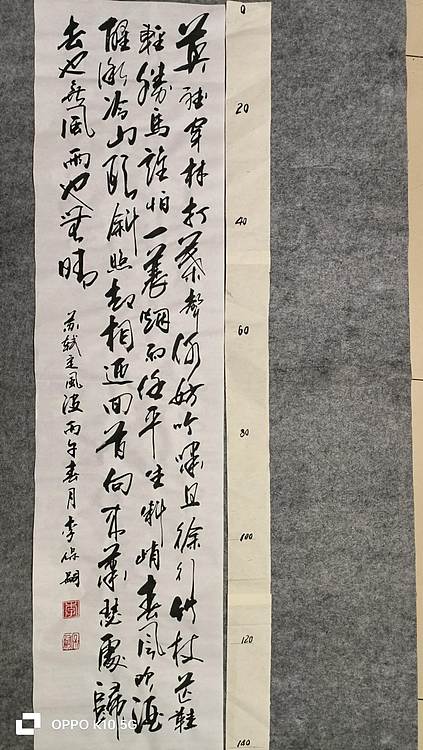 莫聽穿林打葉聲何妨吟嘯且徐行竹杖芒鞋
輕勝馬誰怕一蓑烟雨任平生料峭春風吹酒
醒微冷山頭斜照却相迎回首向来蕭瑟處歸
去也無風雨也無晴
苏軾定風波丙午春月李保嗣
0
20
40
60
80
100
120
140
OPPO K10 5G